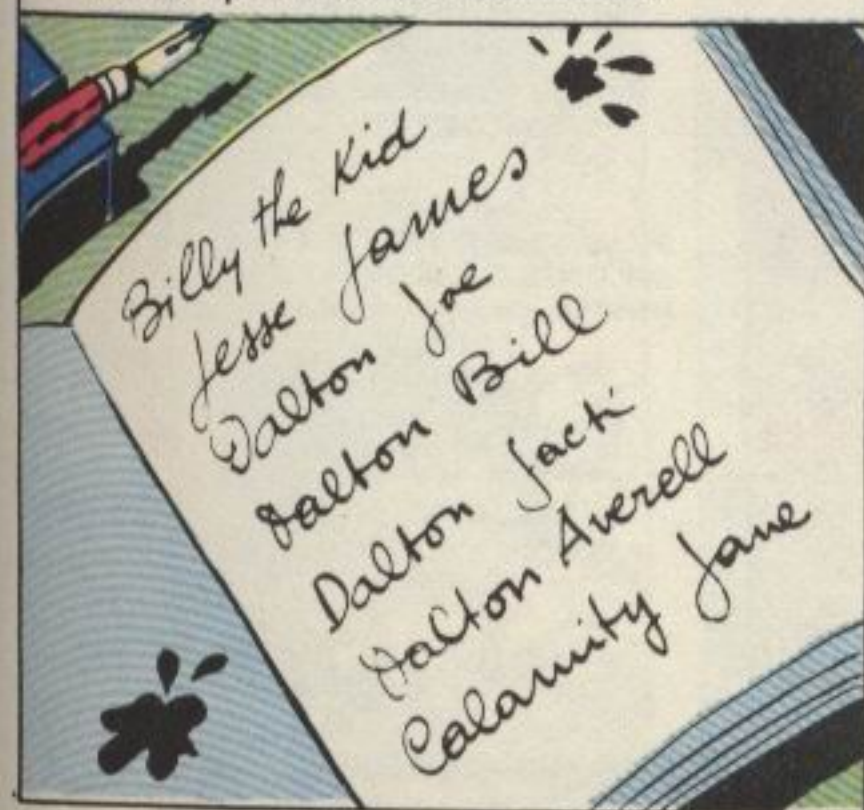 Billy the Kid
Jesse James
Dalton Joe
Dalton Bill
Dalton Jacti
Dalton Averell
Calamity Jane